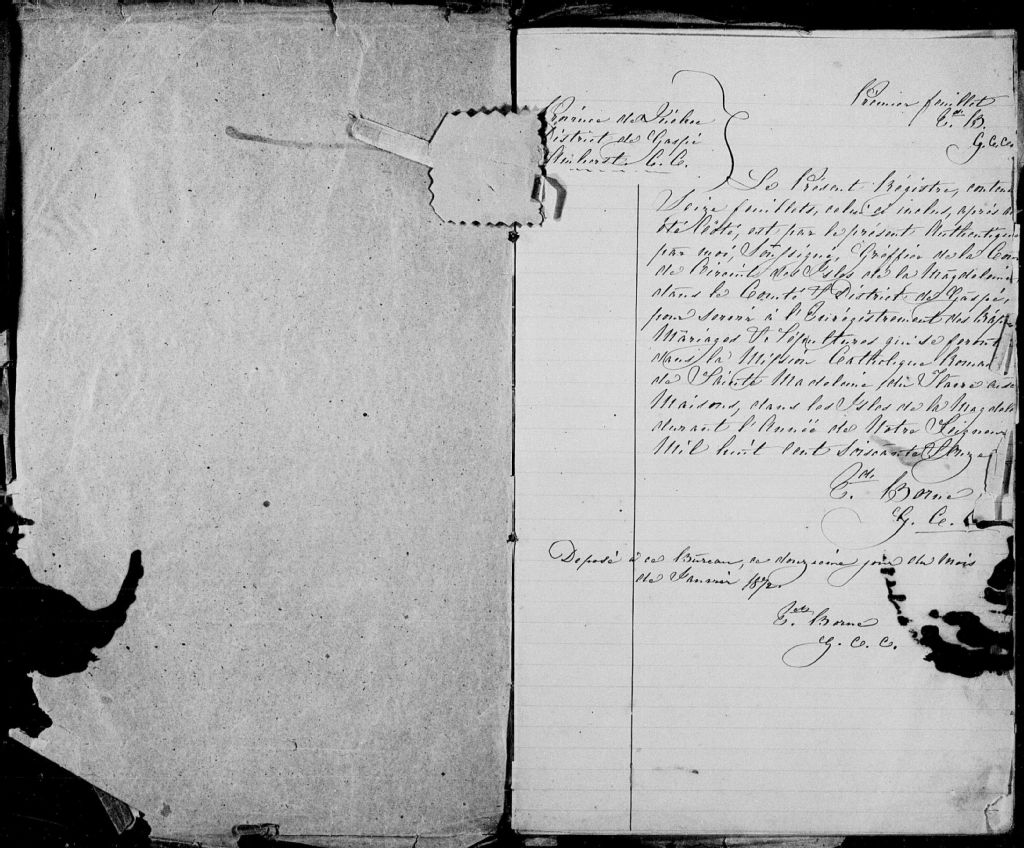 Premier feuillet
E. B.
G.C.C.
Province de Québec
District de Gaspé
Amherst. C. C.
Le Présent Régistre, conten
Seize feuillets, celui ci inclus, après a
été côté, est par le présent Authentiqué
par moi, Soussigné, Greffier de la Cour
de Circuit des Isles de la Magdeleine,
dans le Comté & District de Gaspé,
pour servir à l'Enrégistrement des Bap
Mariages & Sépultures qui se feront
dans la Mission Catholique Romai
de Sainte Madeleine du Havre aux
Maisons, dans les Isles de la Magdele
durant l'Année de Notre Seigneur
Mil huit Cent Soixante & Onze
E. Borne
G. C.
Deposé à ce Bureau, ce douzieme jour du Mois
de Janvier 1872.
E. Borne
G. C. C.